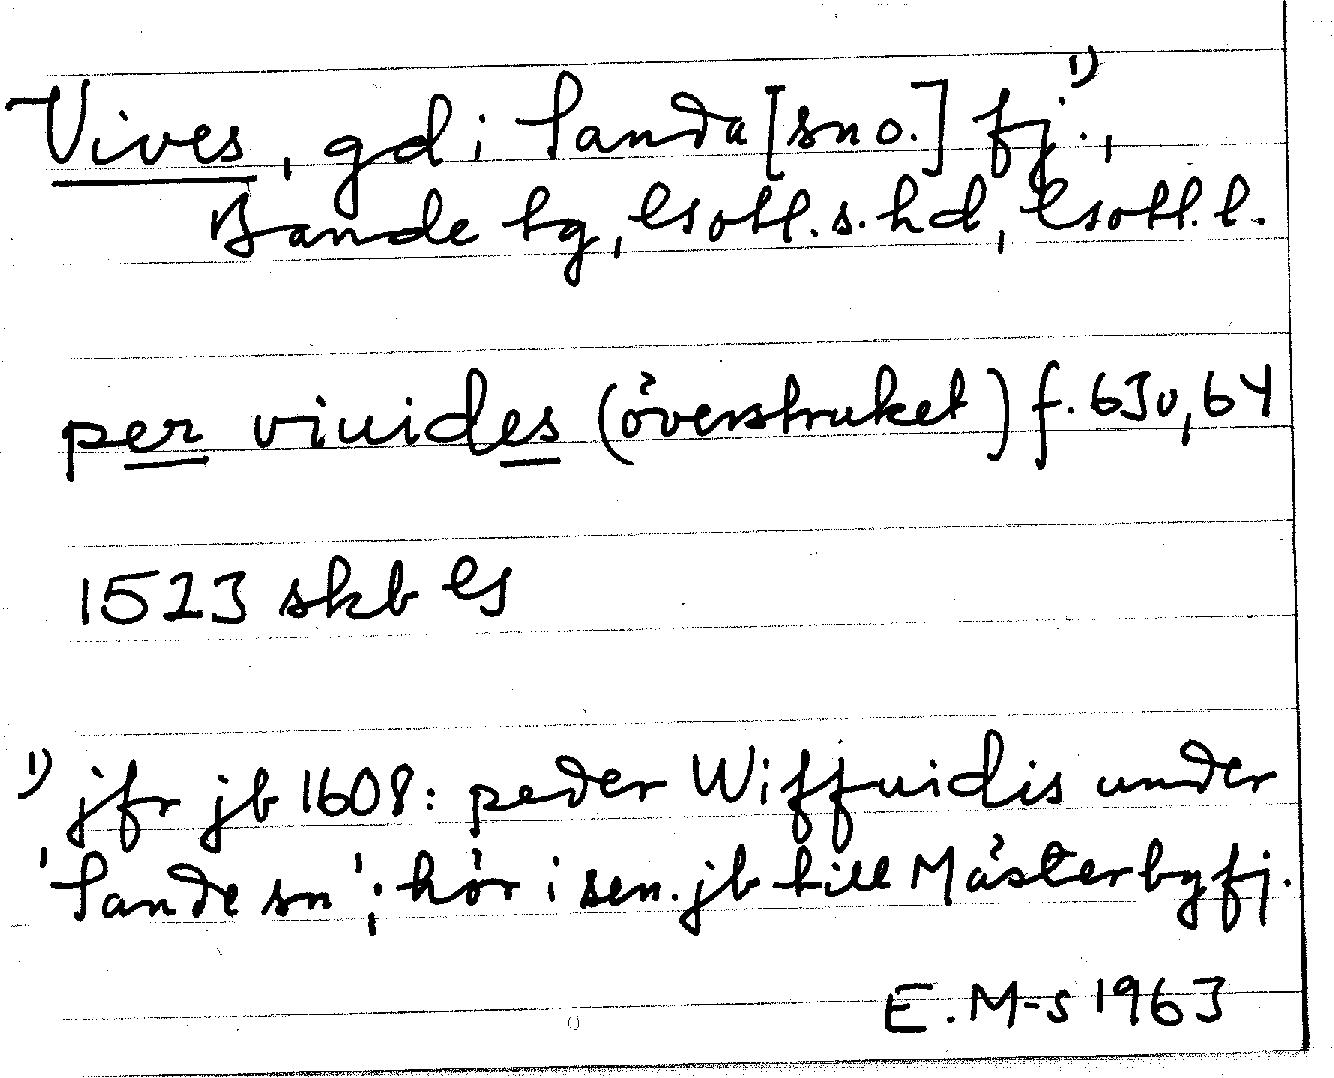 Vives, gd i Sanda [sn o.] fj.¹⁾,
Bande tg, Gotl. s. hd, Gotl. l.
per viuides (överstruket) f. 63v, 64
1523 skb G
¹⁾ jfr jb 1608: peder Wiffuidis under
'Sande sn'; hör i sen. jb till Mästerby fj.
E. M-s 1963